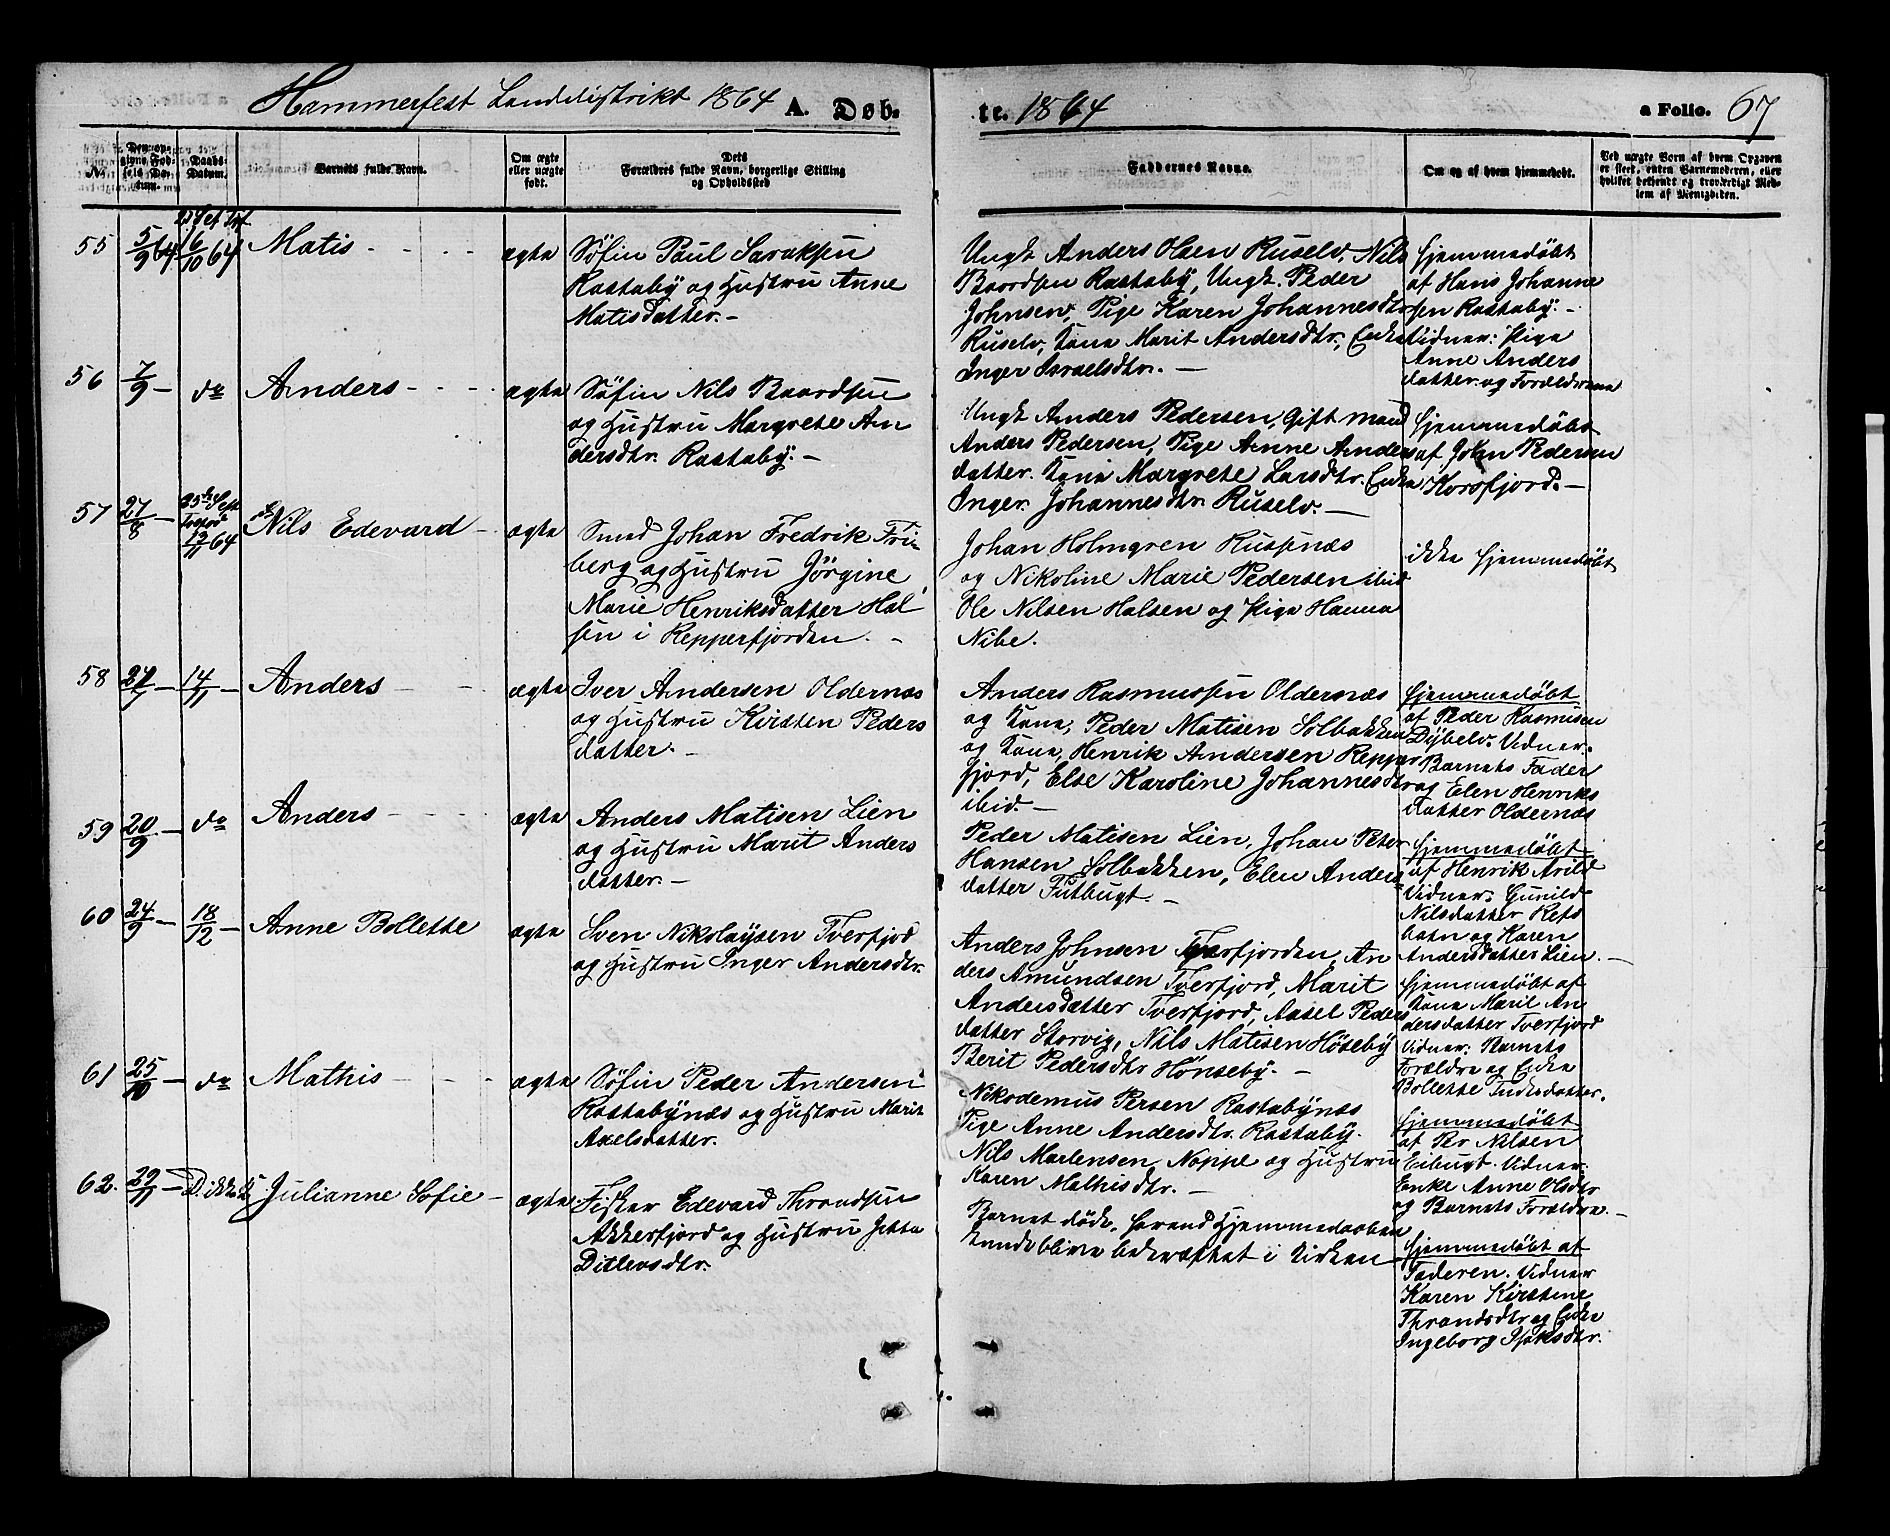 Hammerfest Landdistrikt 1864 A. Døb-
te. 1864 a Folio. 67
No.
Den opgivne Fødsels Datum.
Daabs-Datum.
Barnets fulde Navn.
Om ægte eller uægte født.
Dets Forældres fulde Navn, borgerlige Stilling og Opholdssted
Faddernes Navne.
Om og af hvem hjemmedøbt.
Ved uægte Born af hvem Opgaven er skeet, enten Barnemoderen, eller hvilket bekjendt og troværdigt Medlem af Menigheden.
55 5/9 64 16/10 64 Matis - ægte
Søfin Paul Saraksen
Rastaby og Hustru Anne
Matisdatter. -
Ungk. Anders Olsen Ruselv, Nils
Baardsen Rastaby, Ungk. Peder
Johnsen, Pige Karen Johannesdtr
Ruselv, Kone Marit Andersdtr, Enke
Inger Israelsdtr. -
hjemmedøbt
af Hans Johanne
sen Rastaby. -
Vidner: Pige
Anne Anders
datter og Forældrene
56 7/9 - do Anders - - - ægte
Søfin Nils Baardsen
og Hustru Margrete An
dersdtr. Rastaby. -
Ungk Anders Pedersen, Gift mand
Anders Pedersen, Pige Anne Anders
datter. Kone Margrete Larsdtr. Enke
Inger Johannesdtr. Ruselv. -
hjemmedøbt
af John Pedersen
Korsfjord. -
57 27/8 - 13/11 64 Nils Edevard - ægte
Smed Johan Fredrik Fri-
berg og Hustru Jørgine
Marie Henriksdatter Hal-
sen i Repperfjorden. -
Johan Holmgren Russenæs
og Nikoline Marie Pedersen ibid
Ole Nilsen Halsen og Pige Hanna
Nibe.
ikke hjemmedøbt
58 24/9 - 14/11 - Anders - - ægte
Iver Andersen Oldernæs
og Hustru Kirsten Peders
datter. -
Anders Rasmussen Oldernæs
og Kone, Peder Matisen Solbakken
og Kone, Henrik Andersen Repper
fjord, Else Karoline Johannesdtr
ibid. -
hjemmedøbt
af Peder Rasmusen
Dybelv. Vidner:
Barnets Fader
og Elen Henriks
datter Oldernæs
59 20/9 - do Anders - - - ægte
Anders Matisen Lien
og Hustru Marit Anders
datter. -
Peder Matisen Lien, Johan Peter
Hansen Solbakken, Elen Anders
datter Futbugt. -
hjemmedøbt
af Henrik Arild
Vidner: Gunild
Nilsdatter
botn og Karen
Andersdatter Lien. -
60 24/9 - 18/12 - Anne Bollette ægte
Sven Nikolaysen Tverfjord
og Hustru Inger Andersdtr.
Anders Johnsen Tverfjorden, An
ders Amundsen Tverfjord, Marit
Andersdatter Tverfjord, Aasel Peders
datter Storvig, Nils Matisen Høseby
Berit Pedersdtr Hönseby. -
hjemmedøbt af
Kone Marit An
dersdatter Tverfjord
Vidner: Barnets
Forældre og Enke
Bollette
61 25/10 - do Mathis - - - ægte
Søfin Peder Andersen
Rastabynæs og Hustru Marit
Axelsdatter.
Nikodemus Persen Rastabynæs
Pige Anne Andersdtr. Rastaby.
Nils Mortensen Noppe og Hustru
Karen Mathisdtr. -
hjemmedøbt
af Per Nilsen
Eibugt. Vidner:
Enke Anne Olsdtr
og Barnets Forældre. -
62. 29/11 - Julianne Sofie - ægte
Fisker Edevard Throndsen
Akkerfjord og Hustru Jetta
Ditlevsdtr.
Barnet døde, forend Hjemmedaaben
kunde blive bekræftet i Kirken -
hjemmedøbt af
Faderen. Vidner
Karen Kirstine
Throndsdtr og Enke
Ingeborg Isaksdtr.